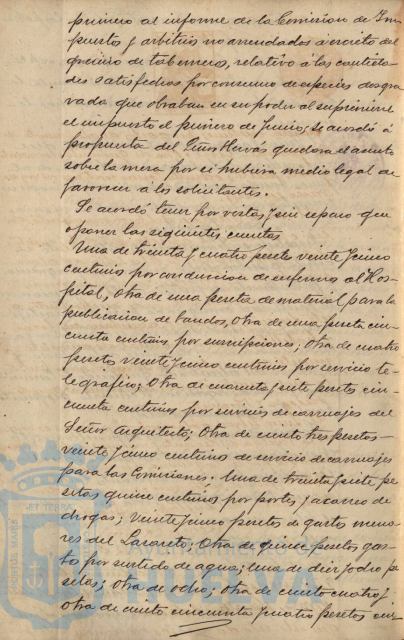 primero al informe de la Comision de Im
puestos y arbitrios no arrendados á escrito del
gremio de taberneros, relativo á las cantida
des satisfechas por consumo de especies desgra
vadas que obraban en su poder al suprimirse
el impuesto el primero de Junio; se acordó á
propuesta del Señor Hervás quedara el asunto
sobre la mesa por si hubiera medio legal de
favorecer á los solicitantes.
Se acordó tener por vistas y sin reparo que
oponer las siguientes cuentas
Una de treinta y cuatro pesetas veinte y cinco
centimos por conduccion de enfermos al Hos-
pital, Otra de una peseta de material para la
publicacion de bandos, Otra de una peseta cin
cuenta centimos por suscripciones; Otra de cuatro
pesetas veinte y cinco centimos por servicio te-
legrafico; Otra de cuarenta y siete pesetas cin
cuenta centimos por servicios de carruajes del
Señor Arquitecto; Otra de ciento tres pesetas
veinte y cinco centimos de servicio de carruajes
para las Comisiones; Una de treinta y siete pe
setas quince centimos por portes y acarreo de
drogas; veinte y cinco pesetas de gastos meno
res del Lazareto; Otra de quince pesetas gas-
to por surtido de agua; Una de diez y ocho pe
setas; otra de ocho; Otra de ciento cuatro y
otra de ciento cincuenta y cuatro pesetas cin
PORTUS MARIS
ET TERRAE
HUELVA